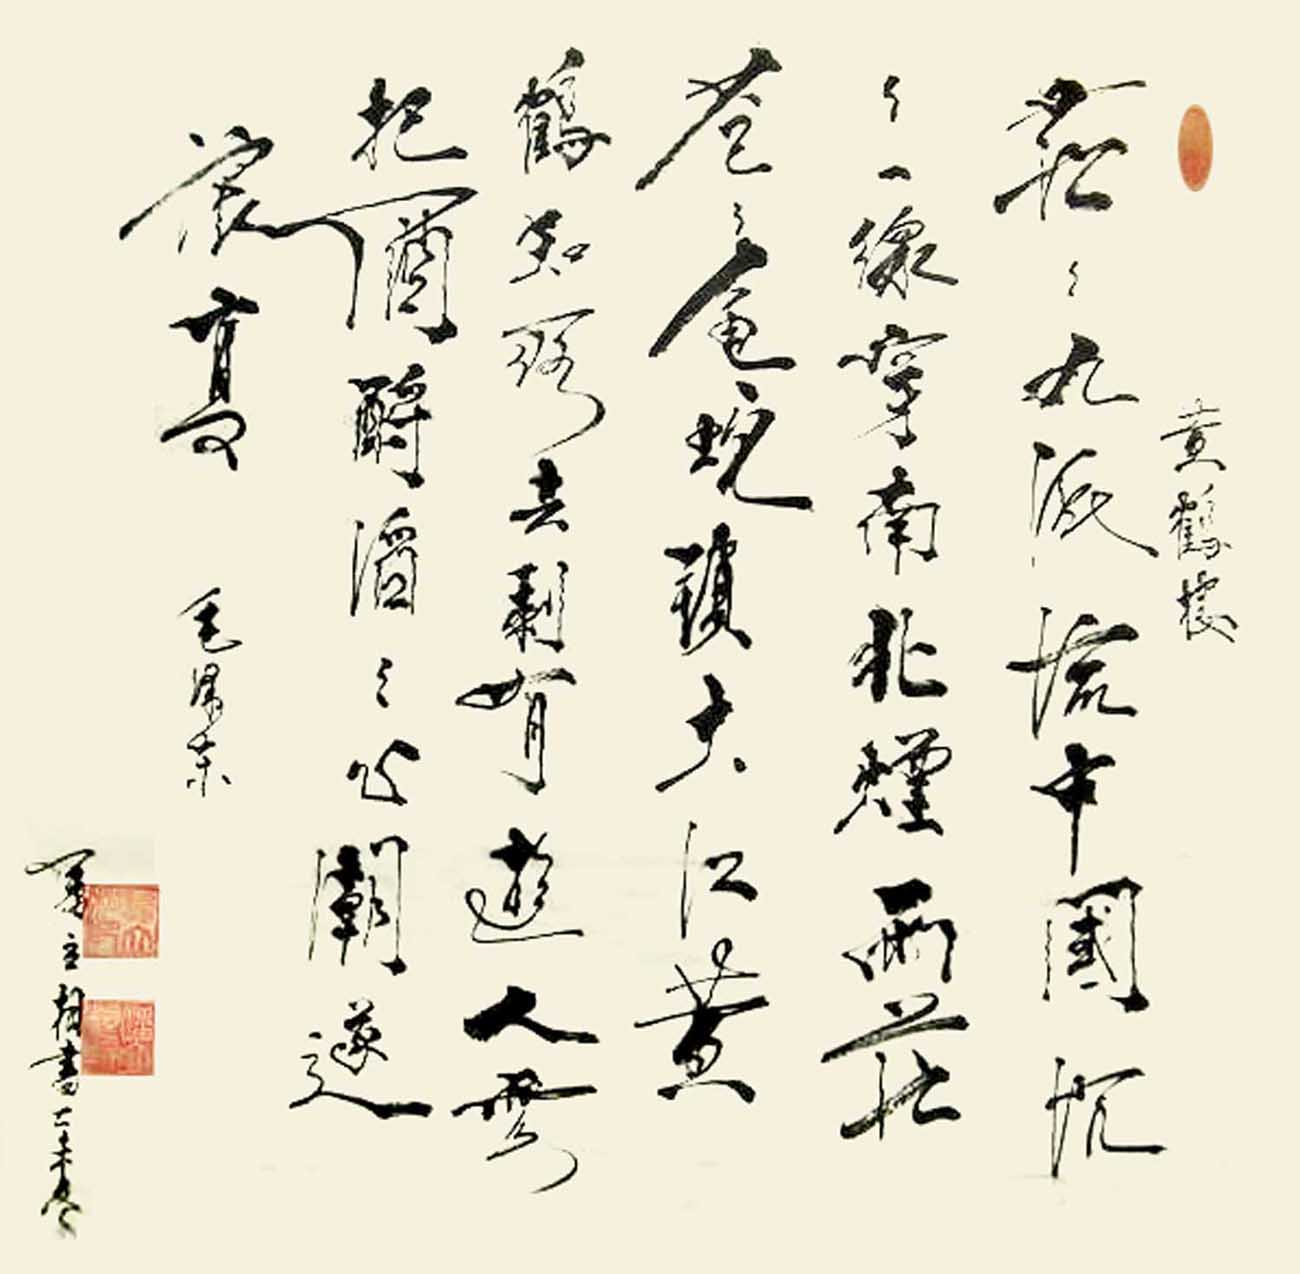 黄鶴樓
茫々九派流中國沉
々一線穿南北煙雨莽
蒼々龜蛇鎖大江黄
鶴知何去剩有遊人處
把酒酹滔々心潮逐
浪高
毛澤東
立樹書未冬